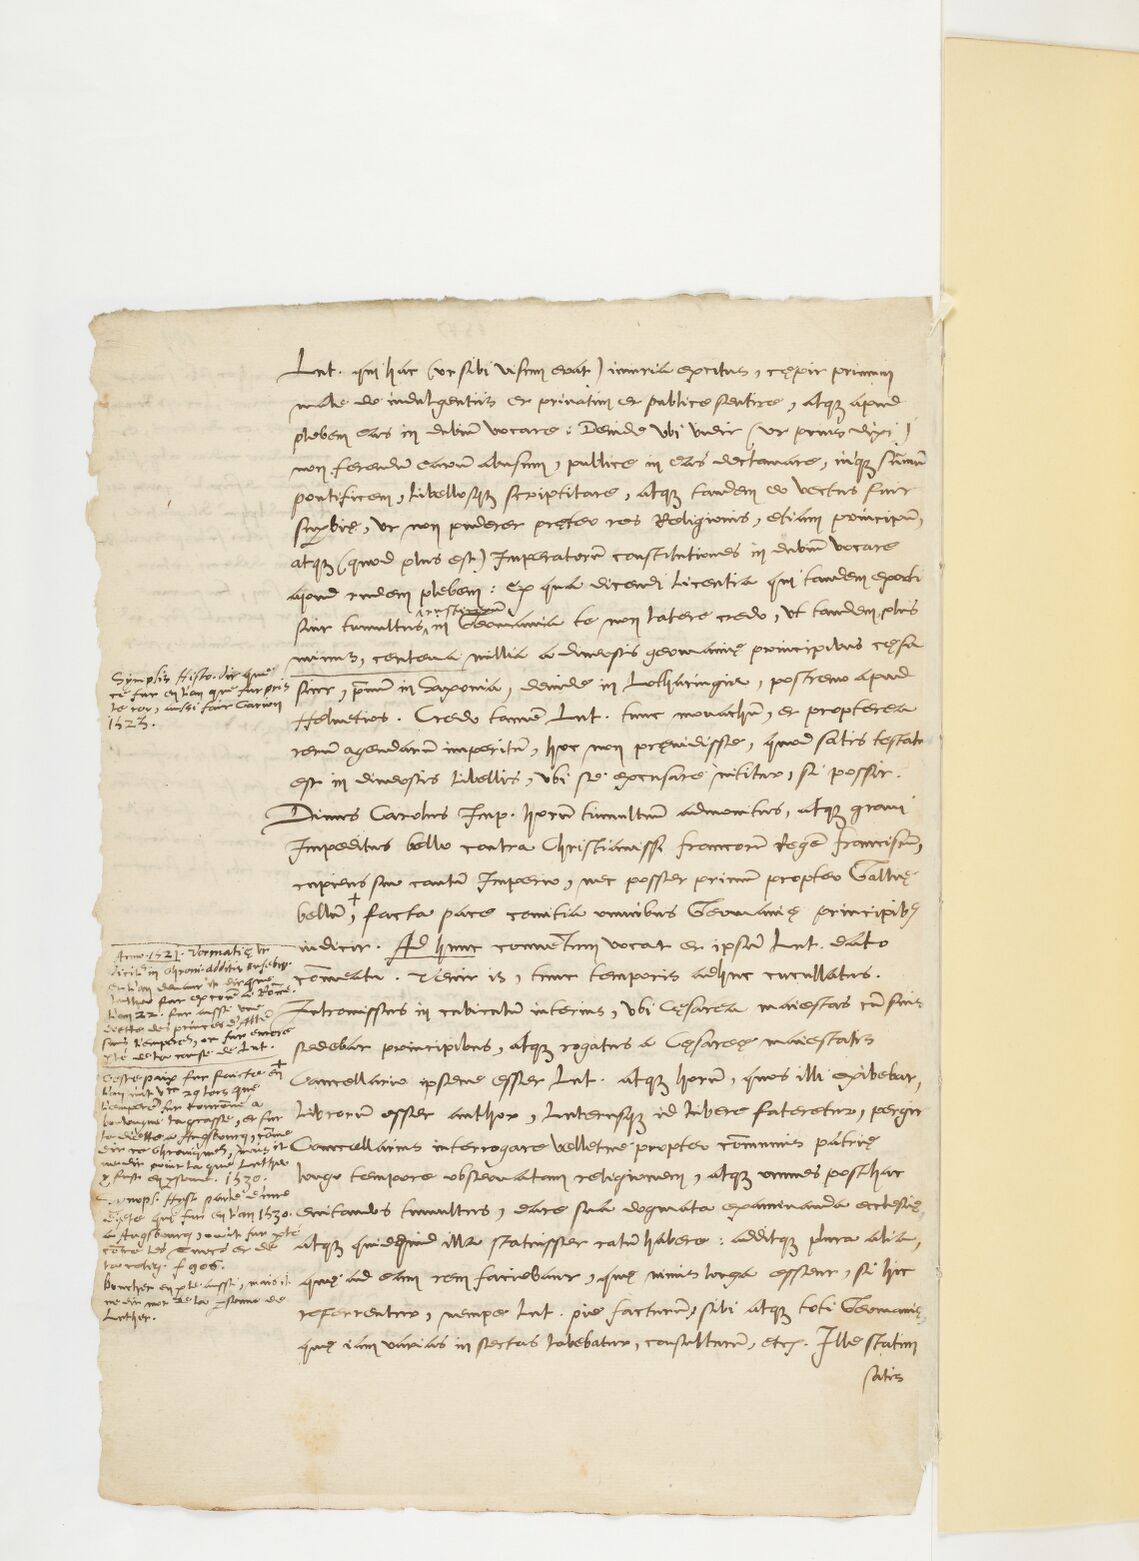 Lut. qui hac (ut sibi visum erat) iniuria excitus, cępit primum
male de indulgentiis et privatim et publice sentire, atque apud
plebem eas in dubium vocare: Deinde ubi vidit (ut prius dixi)
non ferendū earum abusum, publice in eas declamare, inque sūmum
pontificem, libellosque scriptitare, atque tandem eo vectus fuit
supbię, ut non puderet pręter res Religionis, etiam principū,
atque (quod plus est) Imperatorū constitutiones in dubiū vocare
apud rudem plebem: Ex qua dicendi licentia qui tandem exorti
rusticorū
sint tumultus, in Germania te non latere credo, ut tandem plus
minus, centena millia a diversis germanię principibus cęsa
sint, primū in Saxonia, deinde in Lotharingia, postremo apud
Helvetios. Credo tamē Lut. tunc monachū, et propterea
rerum agendarum imperitū, hoc non pręvidisse, quod satis testatū
est in diversis libellis, ubi se excusare nititur, si possit.
Divus Carolus Imp. horum tumultuum admonitus, atque gravi
Impeditus bello contra Christianissi francorū Regē franciscū,
cupiens suo cautū Imperio, nec posset primum propter Gallię
bellum +, facta pace comitia omnibus Germanię principibus
indicit. Ad hunc conventum vocat et ipsum Lut. dato
cōmeatu. Venit is, tunc temporis adhuc cucullatus.
Intromissus in cubiculum interius, ubi Cęsarea maiestas cū suis
sedebat principibus, atque rogatus a Cęsareę maiestatis
Cancellario ipsene esset Lut. atque horū, quos illi exibebat,
librorum esset author, Luterusque id libere fateretur, pergit
Cancellarius interrogare velletne propter cōmunis patrię
longo tempore observatam religionem, atque omnes posthac
evitandos tumultus, dare sua dogmata examinanda ecclesię,
atque quidquid illa statuisset ratum habere: additque plura alia,
quę ad eam rem faciebant, quę nimis longa essent, si hic
referrentur, nempe Lut. pie facturum, sibi atque toti Germanię,
quę iam varias in sectas labebatur, consulturū, etc. Ille statim
satis
Symplis Histo. dit que
ce fut en l'an que fut pris
le roy, aussi fait Carion
1523.
Anno 1521. Vormatię ut
l'an 22. fut aussi une
+ Ceste paix fut faicte en
la diette a Augsbourg, cōme
1530.
Diete qui fut en l'an 1530.
a Augsbourg,
cōtre les Turcs et de
la relig. f. 906.
Bouchet en ple aussi, mais il
ne dit mot de la de
Luther.